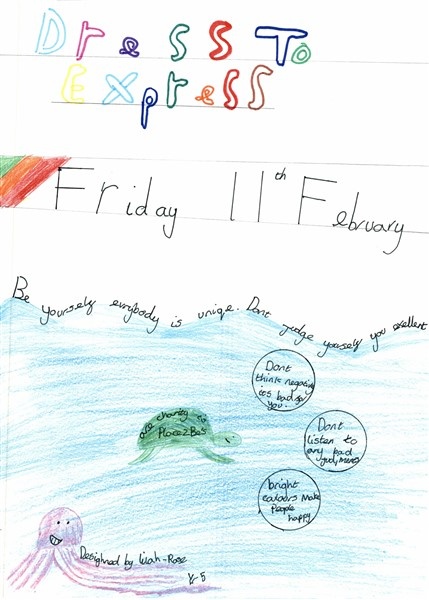 Dress To
Express
Friday 11th February
Be yourself evrybody is uniqe. Dont judge yourself you exellent
Dont
think negativ
its bad for
you.
our charity is
Place2Be's
Dont
listen to
any bad
bright
colours make
People
happy
Desighned by Lilah-Rose
Y-5